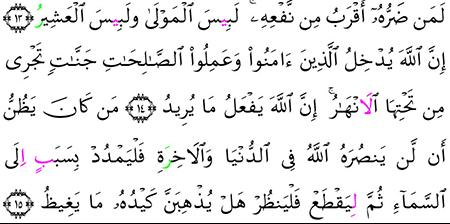 لَمَن ضَرُّهُۥٓ أَقْرَبُ مِن نَّفْعِهِۦۚ لَبِيسَ اَ۬لْمَوْلَىٰ وَلَبِيسَ اَ۬لْعَشِيرُۖ ۝١٣
إِنَّ اَ۬للَّهَ يُدْخِلُ اُ۬لذِينَ ءَامَنُواْ وَعَمِلُواْ اُ۬لصَّٰلِحَٰتِ جَنَّٰتٖ تَجْرِے
مِن تَحْتِهَا اَ۬لَانْهَٰرُۖ إِنَّ اَ۬للَّهَ يَفْعَلُ مَا يُرِيدُۖ ۝١٤ مَن كَانَ يَظُنُّ
أَن لَّنْ يَنصُرَهُ اُ۬للَّهُ فِے اِ۬لدُّنْيَا وَالَاخِرَةِ فَلْيَمْدُدْ بِسَبَبٍ اِلَى
اَ۬لسَّمَآءِ ثُمَّ لِيَقْطَعْ فَلْيَنظُرْ هَلْ يُذْهِبَنَّ كَيْدُهُۥ مَا يَغِيظُۖ ۝١٥